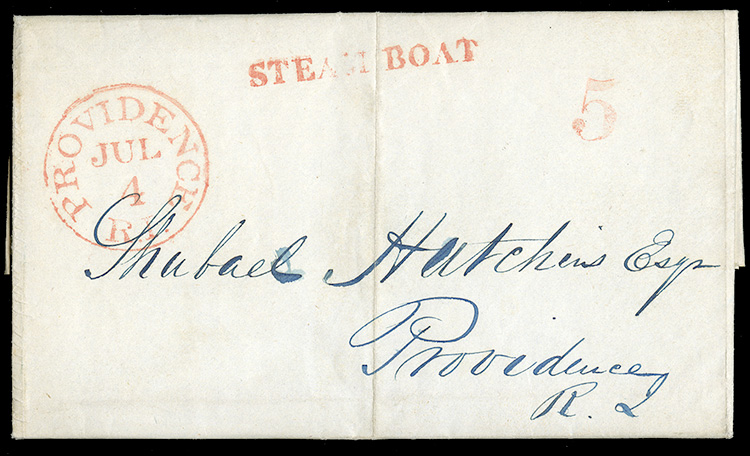 STEAM BOAT
5
PROVIDENCE
JUL
4
R.I.
Shubael Hutchins Esqr
Providence
R. I